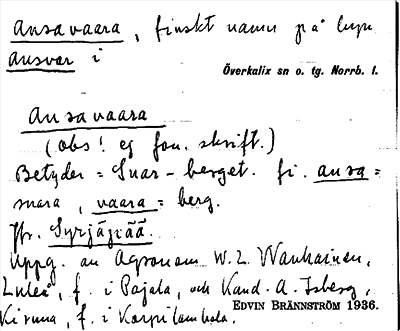 ansavaara, finskt namn på byn
ansvar i
Överkalix sn o. tg. Norrb. l.
ansavaara
(obs! ej fon. skrift.)
Betyder = Snar-berget. fi. ansa =
snara, vaara = berg.
Jfr. Syrjäjää.
Uppg. av Agronom W. L. Wanhainen,
Luleå, f. i Pajala, och Kand. A. Isberg,
EDVIN BRÄNNSTRÖM 1936.
Kiruna, f. i Korpilombolo.